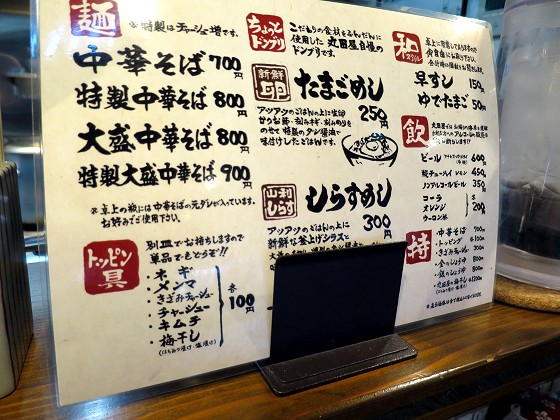 麺
※特製はチャーシュー増です。
中華そば 700円
特製中華そば 800円
大盛中華そば 800円
特製大盛中華そば 900円
※卓上の瓶には中華そばの元ダレが入っています。
お好みでご使用下さい。
トッピン具
別皿でお持ちしますので
単品でもどうぞ!!
・ネギ
・メンマ
・きざみチャーシュー
・チャーシュー
・キムチ
・梅干し
各100円
ちょっとドンブリ
こだわりの食材をふんだんに
使用した丸田屋自慢の
ドンブリです。
新鮮卵
たまごめし
250円
アツアツのごはんの上に生卵
のせて特製のダシ醤油で
味付けしたごはんです。
山利しらす
しらすめし
300円
アツアツのごはんの上に
新鮮な釜上げシラスと
和
早すし 150円
ゆでたまご 50円
飲
ビール 600円
450円
ノンアルコールビール 350円
コーラ
オレンジ
ウーロン茶
200円
持
・中華そば
・トッピング
・きざみチャーシュー
・金のしょうゆ
・銀のしょうゆ